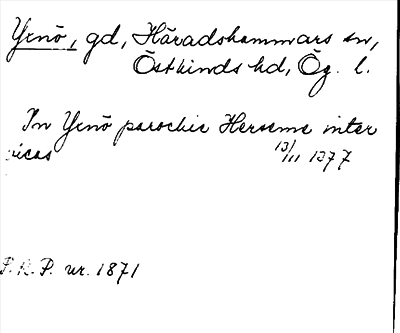 Yxnö, gd, Häradshammars sn,
Östkinds hd, Ög. l.
In Yxnö parochie Hersems inter
vicos 13/11 1377
P.R.P. nr. 1871